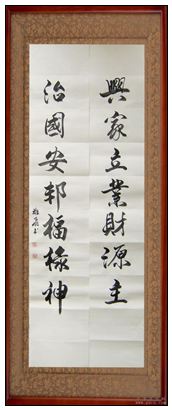 興家立業財源主
治國安邦福祿神